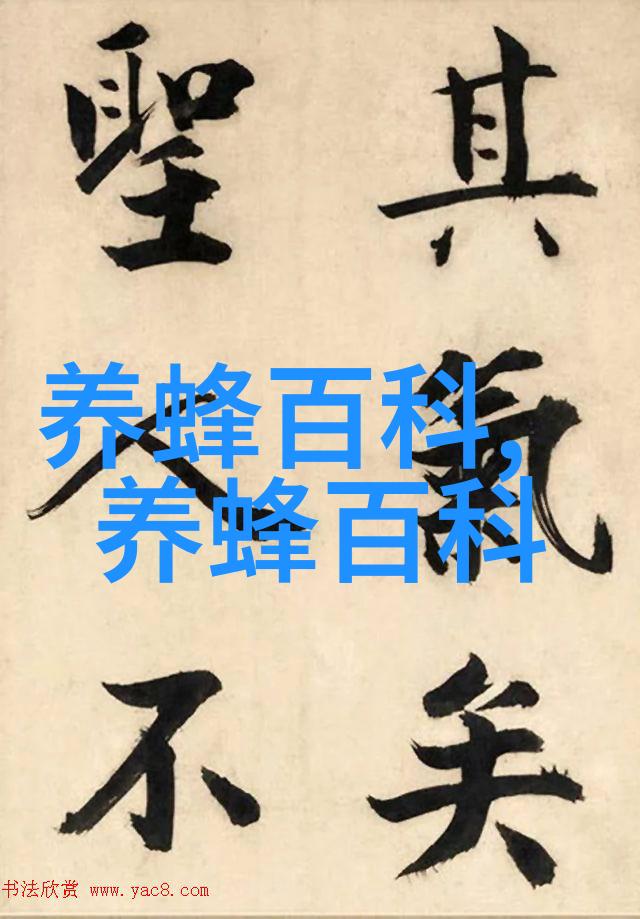 其氣矣
聖人不
养蜂百科,
养蜂百科
书法欣赏 www.yac8.com